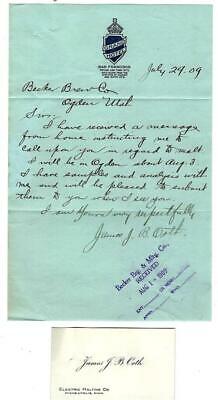 GRAND HOTEL
SAN FRANCISCO
July 29, 09
Becker Brew Co
Ogden Utah
Sir:
I have received a message
from home instructing me to
call upon you in regard to malt
I will be in Ogden about Aug 3.
I have samples and analysis with
me and will be pleased to submit
them to you when I see you.
I am Yours very respectfully,
James J. B. Oath.
Becker Brg. & Mltg. Co.
RECEIVED
AUG 1 - 1909
James J B Oath
ELECTRIC MALTING CO
MINNEAPOLIS, MINN.